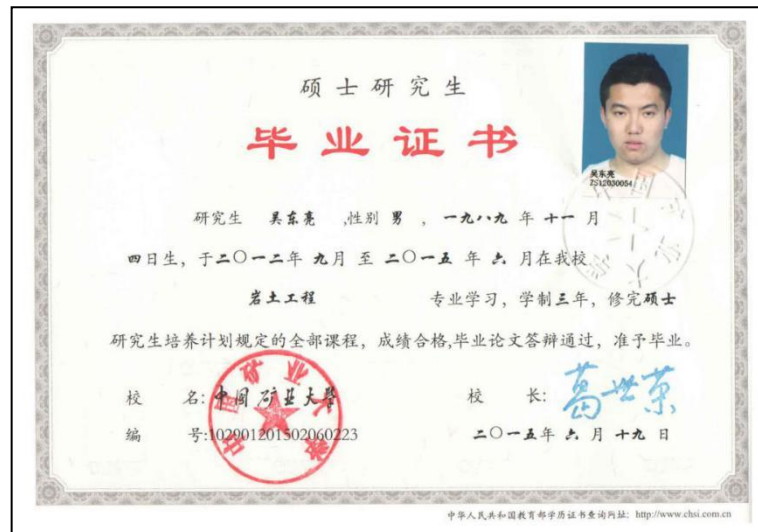 硕士研究生
毕业证书
吴东亮
ZS12030054
研究生 吴东亮 ,性别 男 , 一九八九 年 十一 月
四日生, 于二〇一二年 九月 至 二〇一五 年 六 月在我校
岩土工程 专业学习, 学制三年, 修完硕士
研究生培养计划规定的全部课程, 成绩合格,毕业论文答辩通过, 准予毕业。
校 名: 中国矿业大学 校 长: 葛世荣
编 号:102901201502060223 二〇一五年 六 月 十九 日
中国矿业大学
中华人民共和国教育部学历证书查询网址: http://www.chsi.com.cn